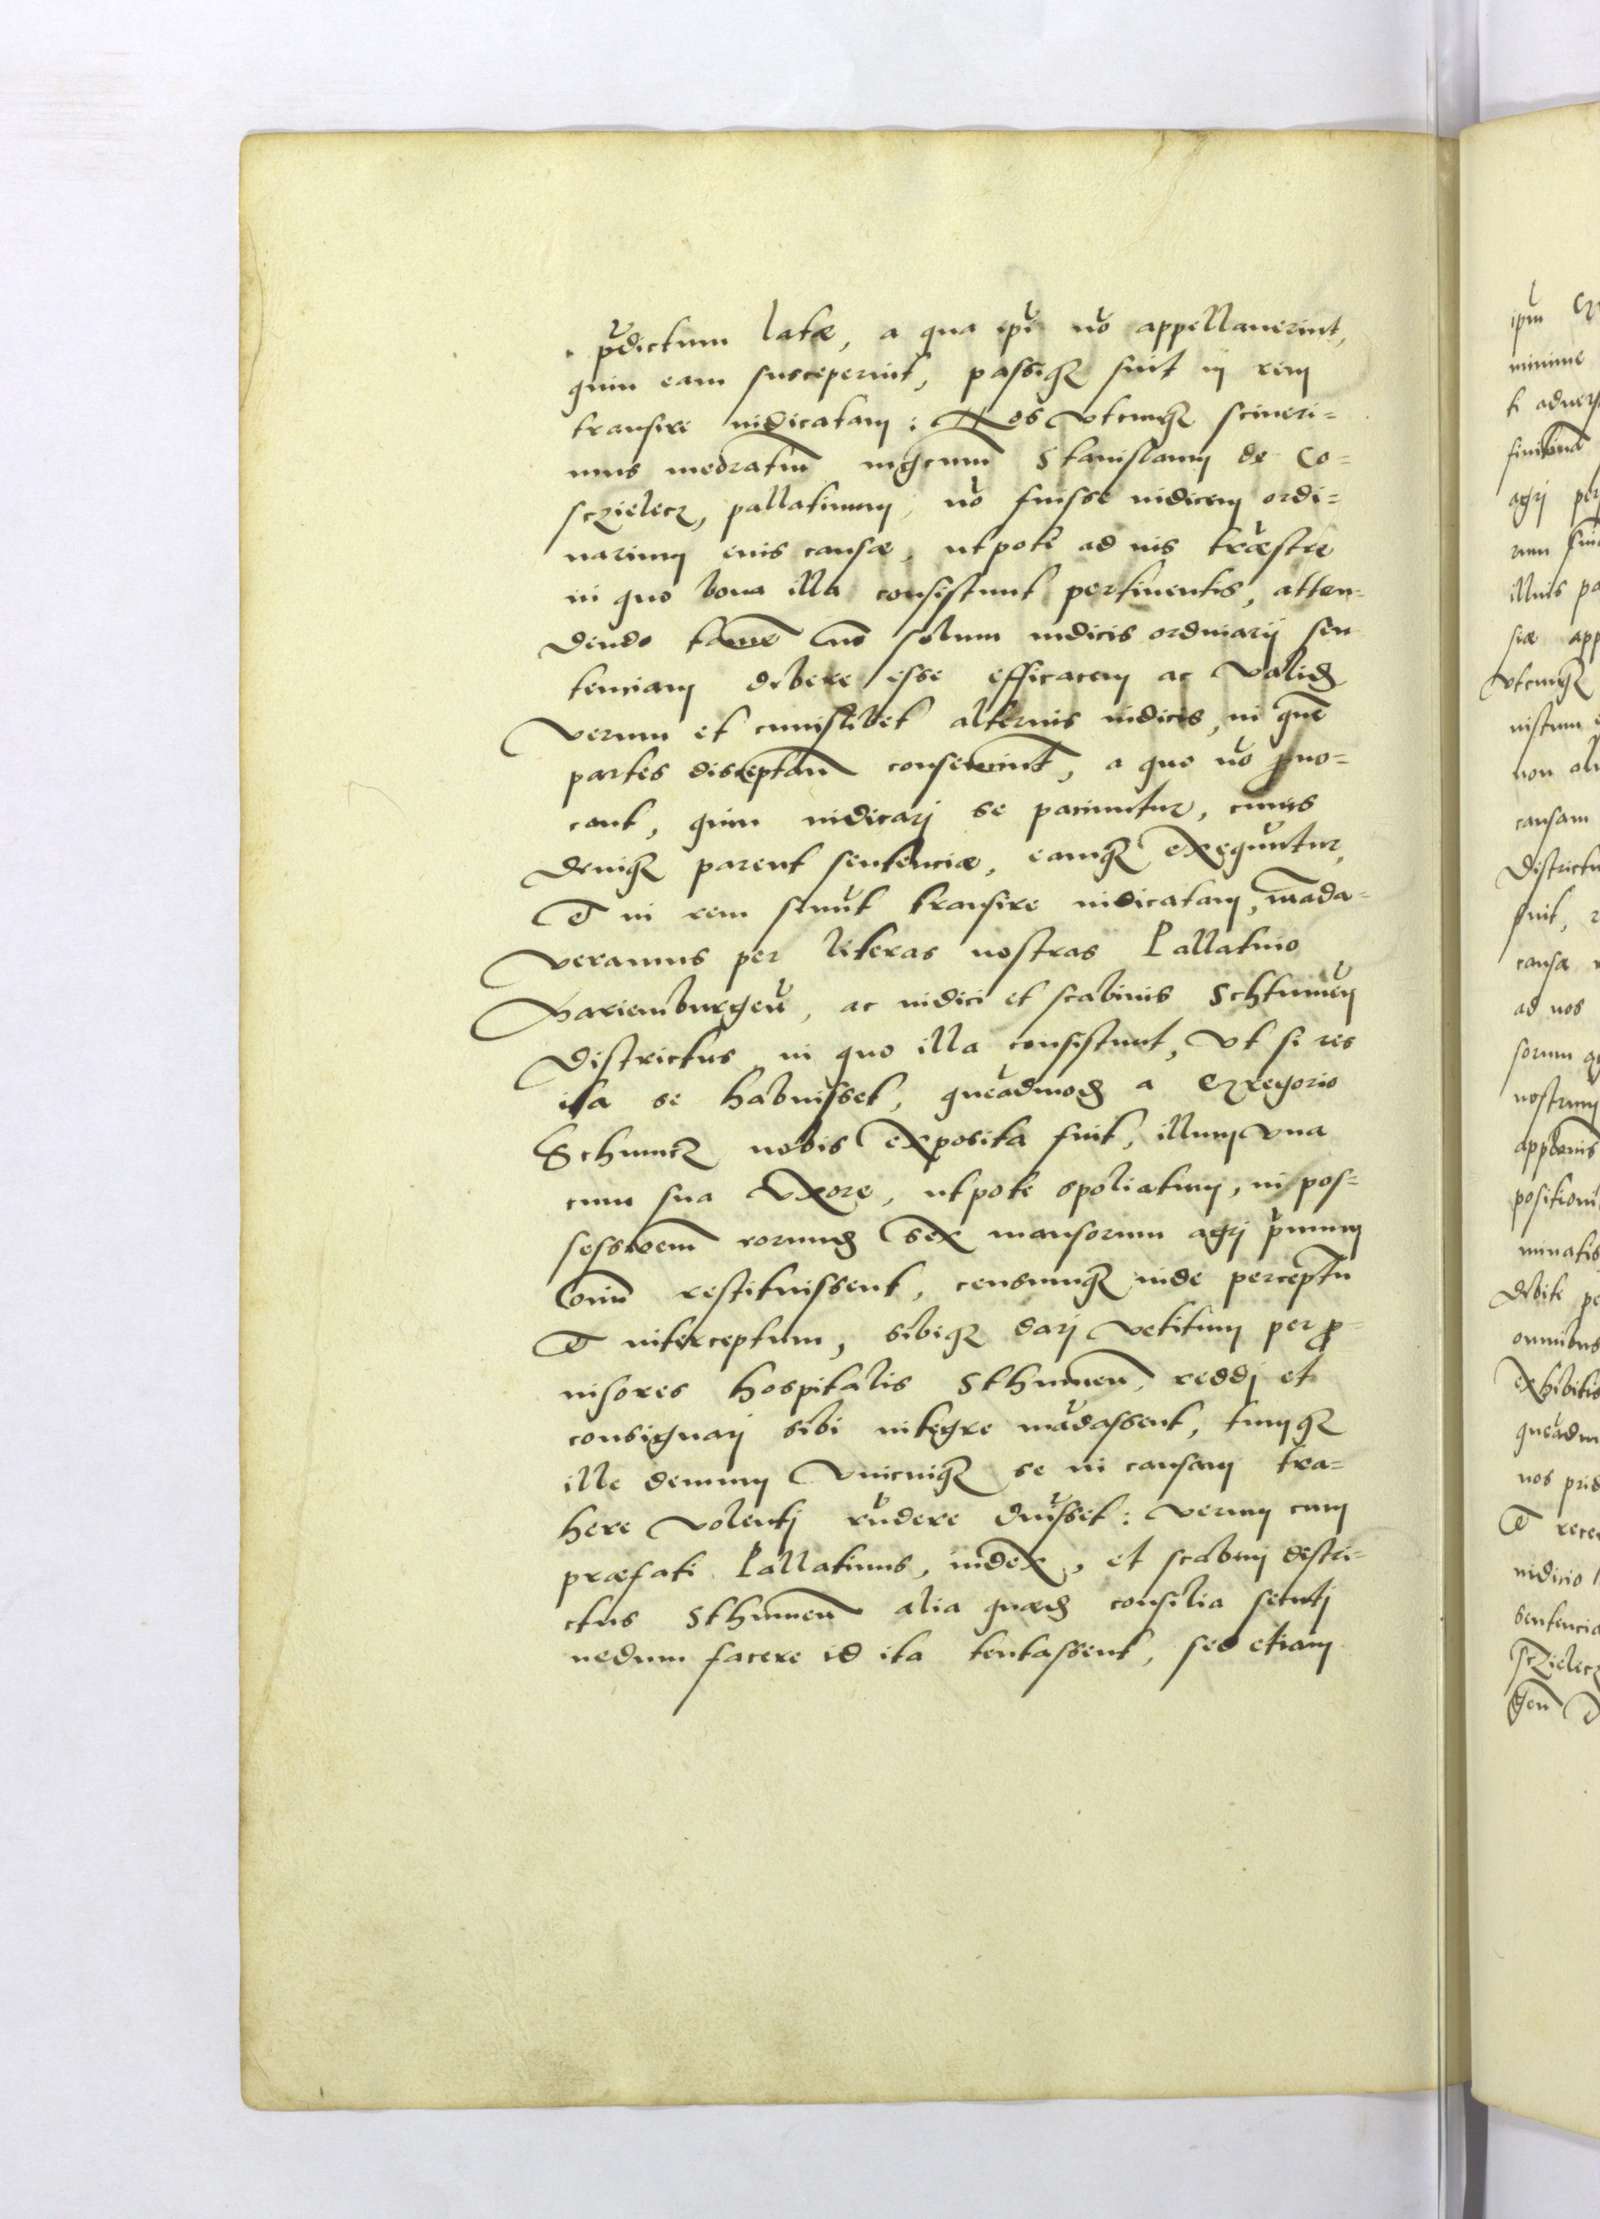 p̄dictum latæ, a qua ipī nō appellauerint,
quin eam susceperint, passiqȝ sint in rem
transire iudicatam: Nos vtcunqȝ sciueri=
mus memoratum mgcum Stanislaum de Co=
sczielecz, pallatinum, nō fuisse iudicem ordi=
narium euis causæ, utpote ad ius terrestre
in quo bona illa consistunt pertinentis, atten=
dendo tamē nō solum iudicis ordinarij sen
tenciam debere esse efficacem ac valid
verum et cuiuslibet alterius iudicis, in quē
partes disceptan̄ consenserint, a quo nō prouo=
cant, quin iudicarj se paciuntur, cuius
deniqȝ parent sentenciæ, eamqȝ exequūtur,
Et in rem sinūt transire iudicatam, māda=
veramus per literas nostras Pallatino
Mariemburgeñ, ac iudici et scabinis Schtumeñ
Districtus in quo illa consistunt, Vt si res
ita se habuisset, quēadmod a Gregorio
Schuncz nobis exposita fuit, illum vna
cum sua vxore, utpote spoliatum, in pos=
sessionem eorund sex mansorum agrj primum
om̄iū restituissent, censumqȝ inde perceptū
Et interceptum, sibiqȝ darj vetitum per pro=
uisores hospitalis Sthumeñ, reddj et
consignarj sibi integre mādassent, tumqȝ
ille demum vnicuiqȝ se in causam tra=
here volentj rn̄dere debuisset: Verum cum
præfati Pallatinus, iudex, et scabinj distri=
ctus Sthumeñ alia quæd consilia secutj
nedum facere id ita tentassent, sed etiam